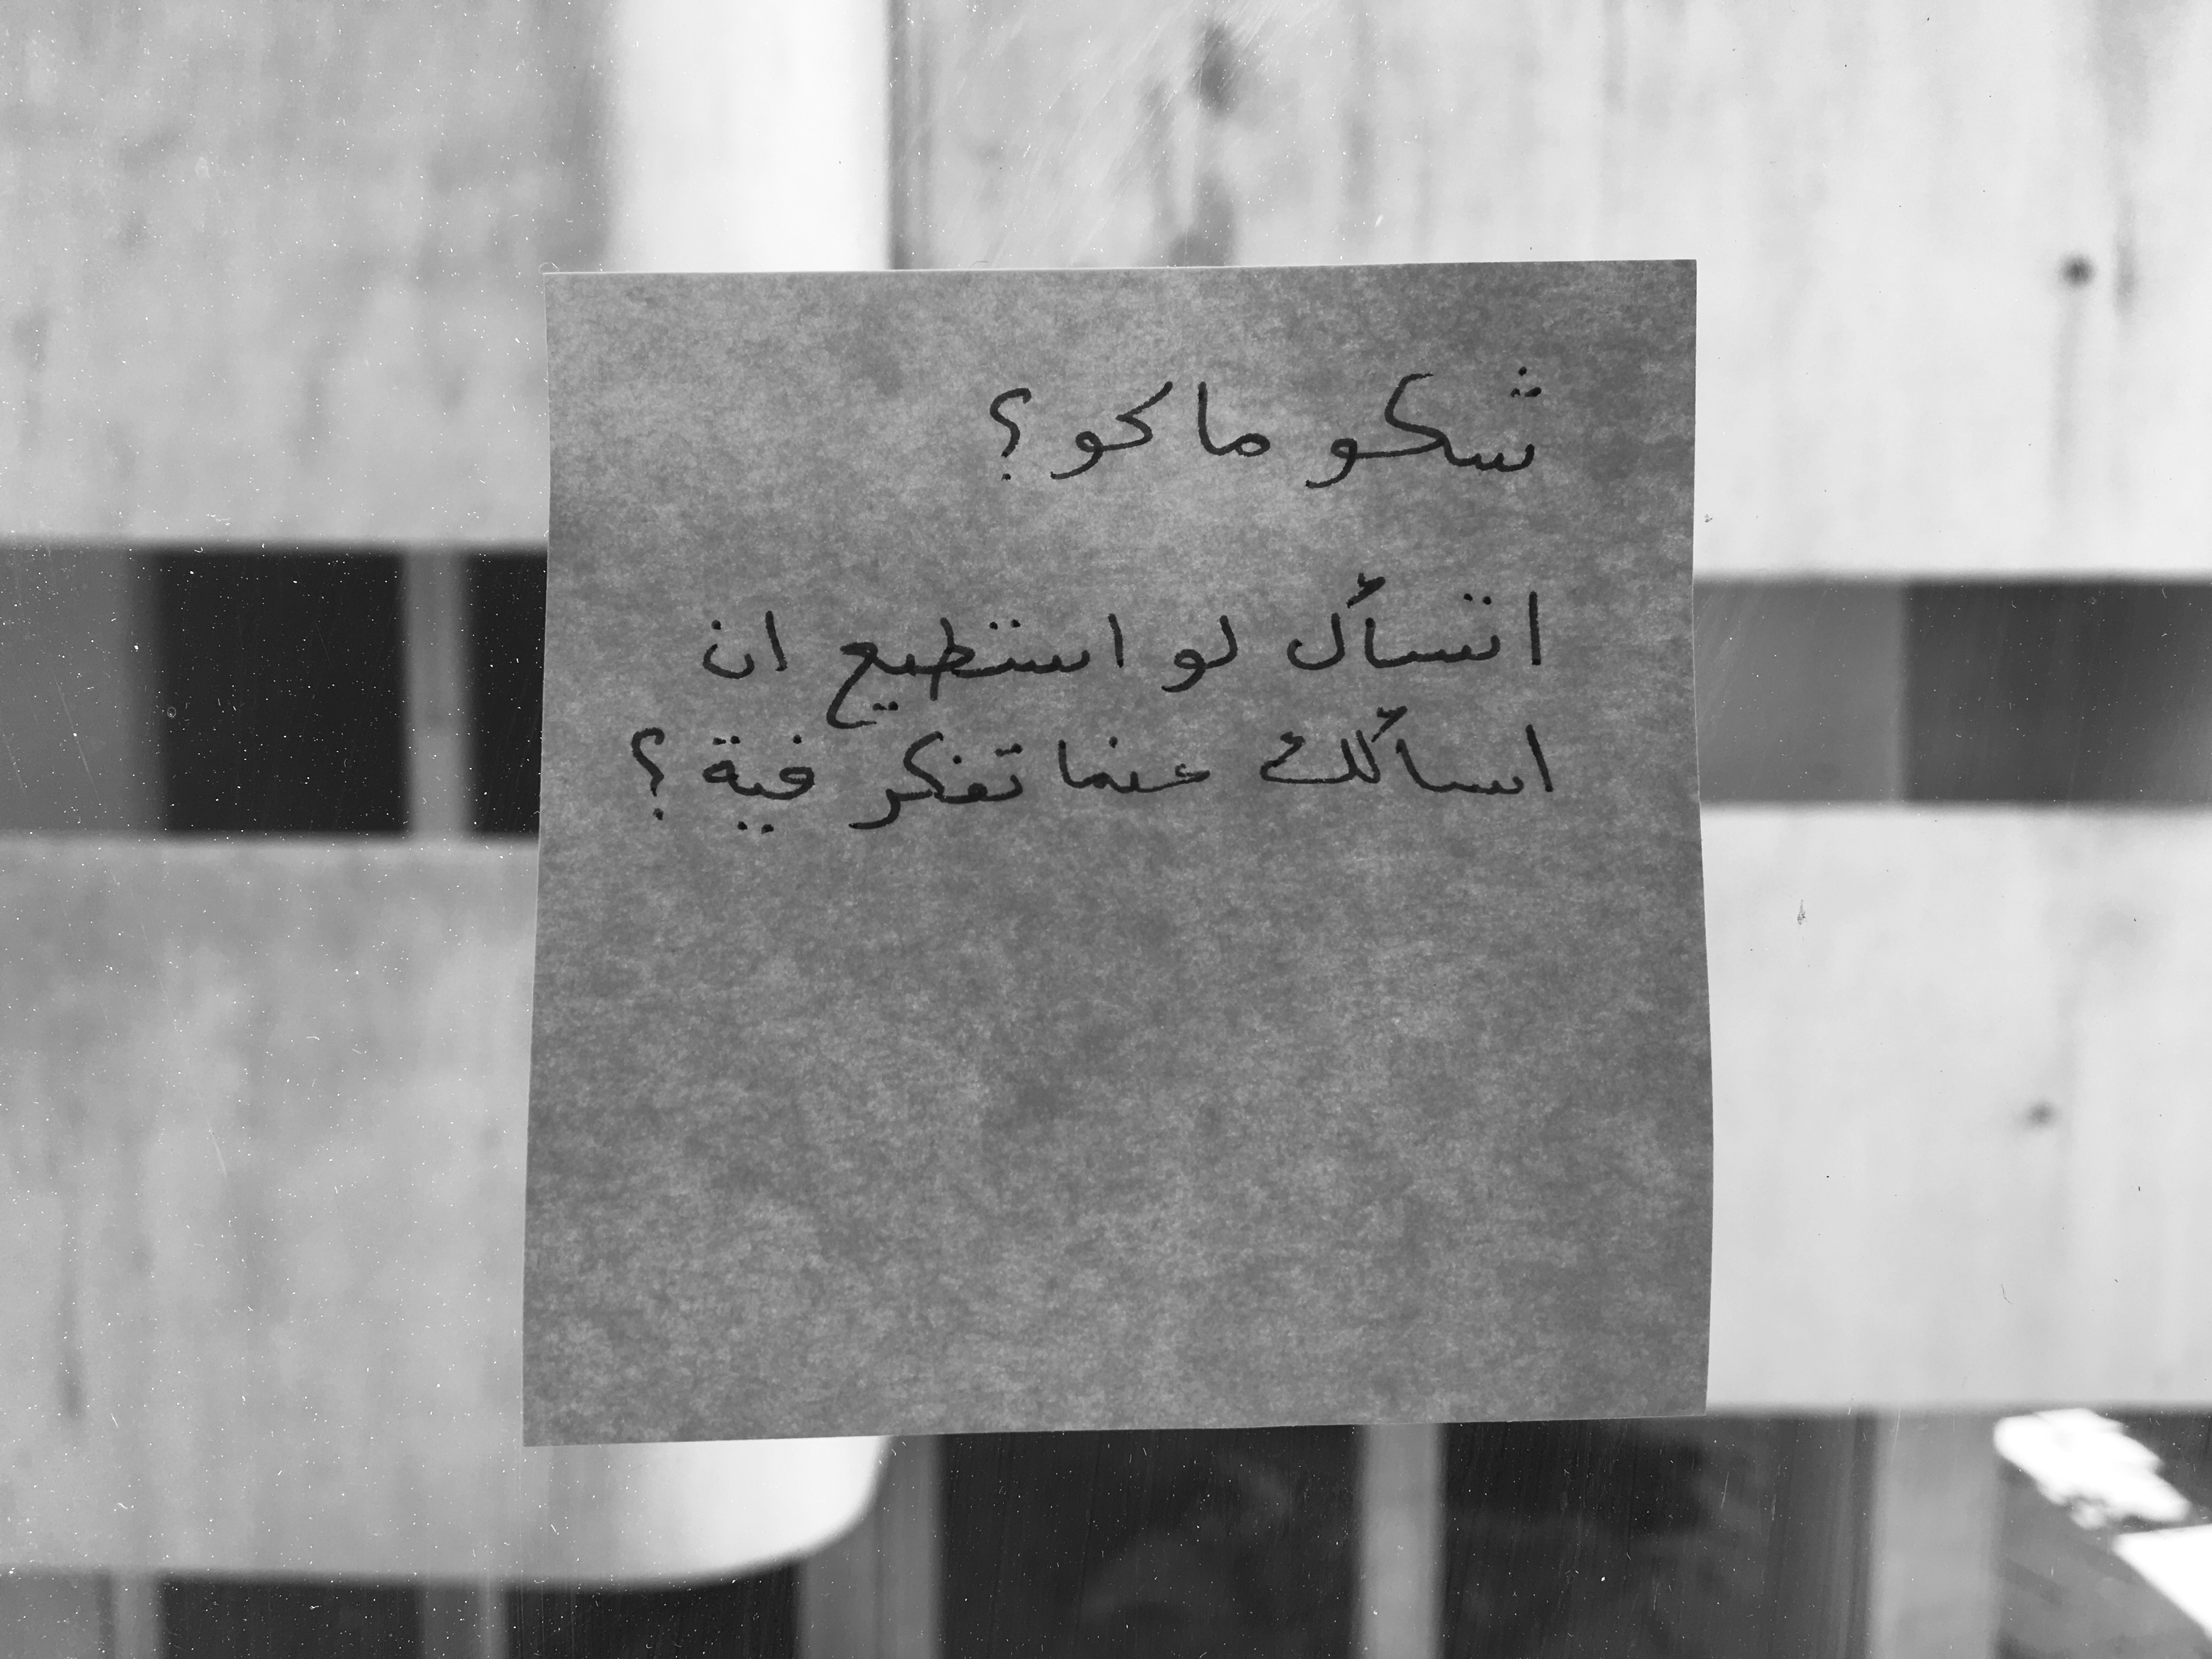 شكو ماكو؟
اتسأل لو استطيع ان
اسألك عنما تفكر فية؟